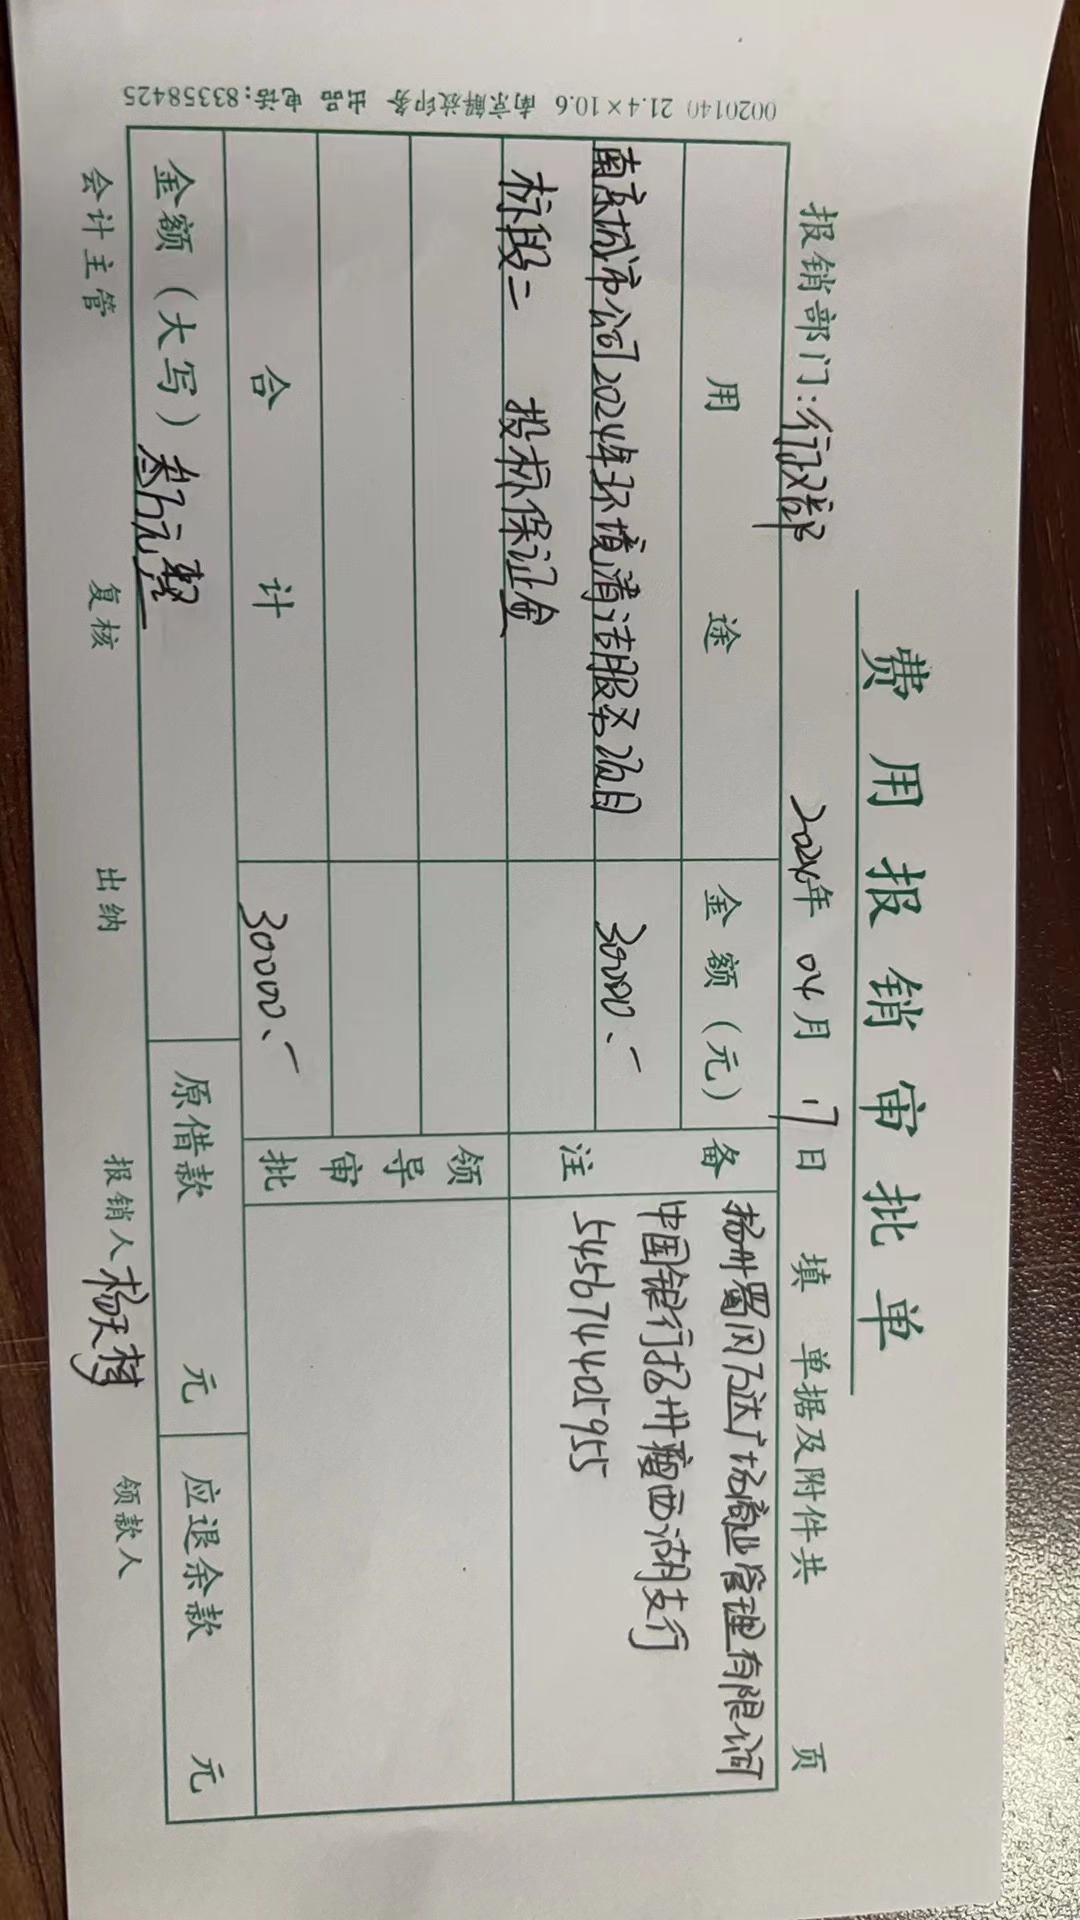 费用报销审批单
报销部门：行政部 2024年 04月 17日 填 单据及附件共 页
用途 金额（元） 备注
南京城市公司2024年环境清洁服务项目 30000.-
标段二 投标保证金
扬州蜀冈万达广场商业管理有限公司
中国银行扬州瘦西湖支行
545674405955
领导审批
合计 30000.-
金额（大写）叁万元整 原借款 元 应退余款 元
会计主管 复核 出纳 报销人 杨天 领款人
0020140 21.4×10.6 南京解放印务 出品 电话：83358425